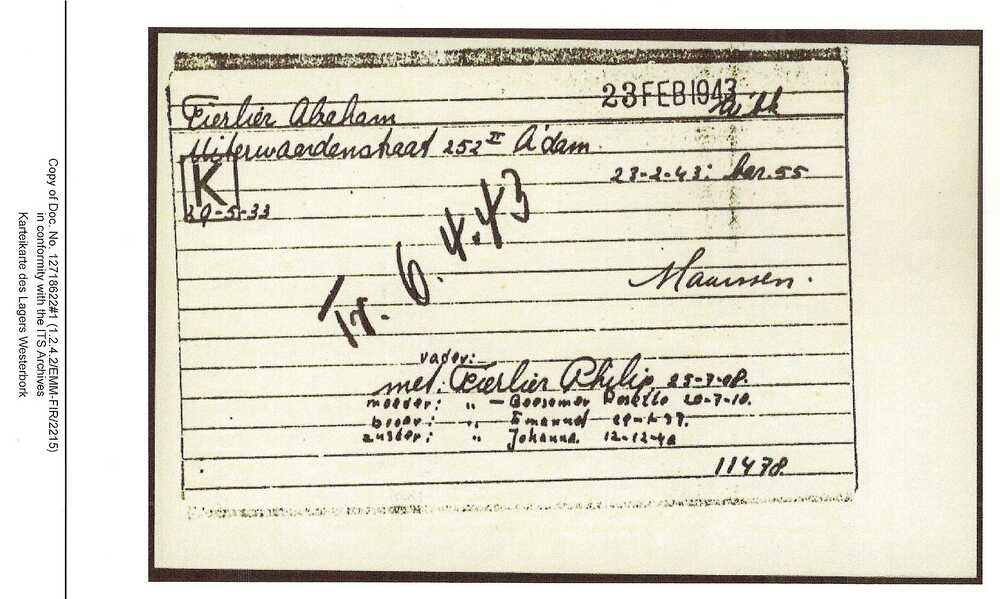 23 FEB 1943
Fierlier Abraham
Uiterwaardenstraat 252 II A'dam
K
23-2-43: bar. 55
29-5-33
Tr. 6.4.43
vader:
met: Fierlier Philip 25-7-08.
moeder: " — Boesemer Rosette 20-7-10.
broer: " Emanuel
zuster: " Johanna. 12-12-40
11478.
Copy of Doc. No. 12718622#1 (1.2.4.2/EMM-FIR/2215)
in conformity with the ITS Archives
Karteikarte des Lagers Westerbork